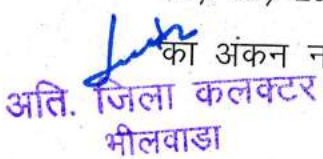 का अंकन न
अति. जिला कलक्टर
भीलवाडा